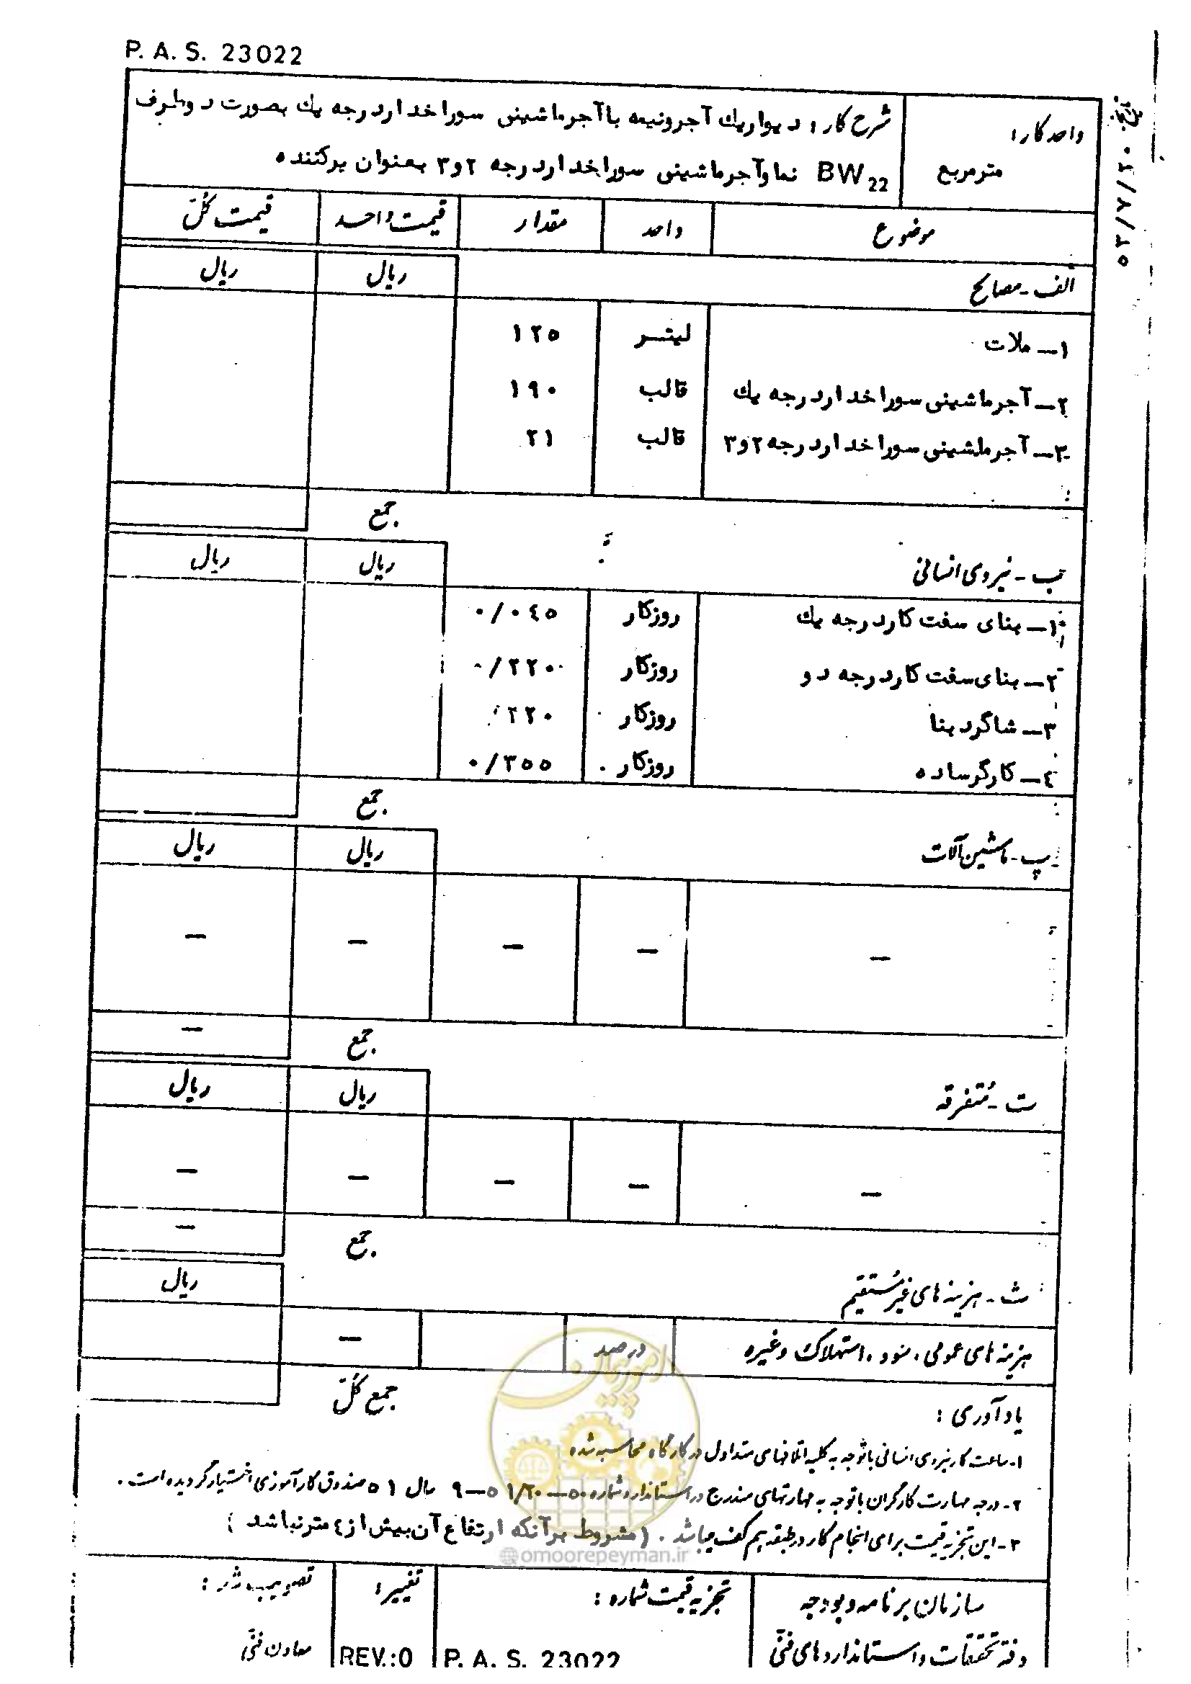 P. A. S. 23022
واحد کار:
مترمربع
شرح کار: دیوار یك آجرونیمه با آجر ماشینی سوراخدار درجه یك بصورت دوطرف
نما و آجر ماشینی سوراخدار درجه ۲و۳ بعنوان پرکننده BW22
۵۳/۷/۲۰
موضوع واحد مقدار قیمت واحد قیمت کل
الف - مصالح ریال ریال
۱- ملات لیتر ۱۲۵
۲- آجر ماشینی سوراخدار درجه یك قالب ۱۹۰
۳- آجر ماشینی سوراخدار درجه ۲و۳ قالب ۲۱
جمع
ب - نیروی انسانی ریال ریال
۱- بنای سفت کار درجه یك روزکار ۰/۰٤۵
۲- بنای سفت کار درجه دو روزکار ۰/۲۲۰
۳- شاگرد بنا روزکار ۲۲۰
٤- کارگر ساده روزکار ۰/۳۵۵
جمع
پ - ماشین آلات ریال ریال
— — — — —
جمع —
ت - متفرقه ریال ریال
— — — — —
جمع —
ث - هزینه های غیرمستقیم ریال
هزینه های عمومی، سود، استهلاک وغیره درصد —
جمع کل
یادآوری:
۱- ساعت کار نیروی انسانی با توجه به کلیه اتلافهای متداول در کارگاه محاسبه شده
۲- درجه مهارت کارگران با توجه به مهارتهای مندرج در استاندارد شماره ۵۰-۱/۲۰ ۵-۹ سال ۵۱ صندوق کارآموزی اختیار گردیده است.
۳- این تجزیه قیمت برای انجام کار در طبقه هم کف میباشد. (مشروط بر آنکه ارتفاع آن بیش از ٤ متر نباشد)
امور پیمان
@omoorepeyman.ir
سازمان برنامه و بودجه
دفتر تحقیقات و استانداردهای فنی
تجزیه قیمت شماره:
P. A. S. 23022
تغییر:
REV.:0
تصویب شد:
معاون فنی